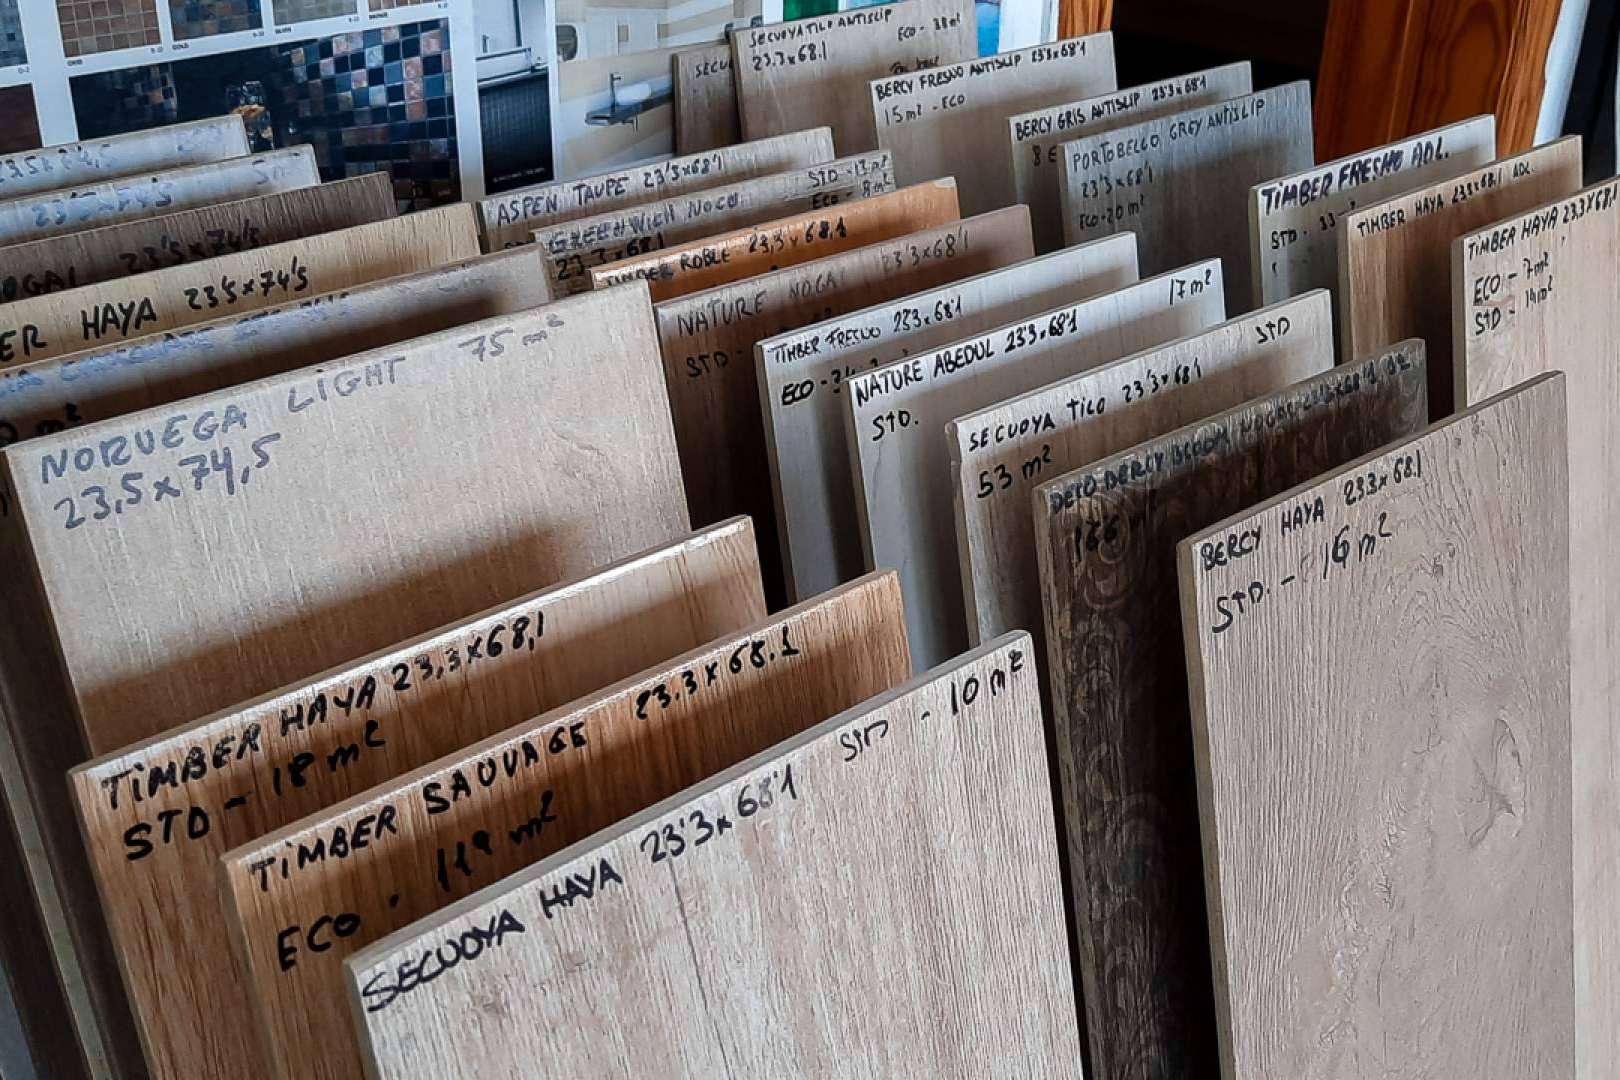 SECUOYA TILO ANTISLIP ECO - 38 m²
23.3x68.1
SECU
BERCY FRESNO ANTISLIP 23'3x68'1
15 m² - ECO
BERCY GRIS ANTISLIP 23'3x68'1
8 E
PORTOBELLO GREY ANTISLIP
23'3x68'1
Eco-20 m²
TIMBER FRESNO ADL.
STD - 33
TIMBER HAYA 23.3x68.1 ADL
TIMBER HAYA 23'3x68'1
ECO - 7m²
STD - 14m²
23.5x74,5
5m²
23'5x74'5
NOGAL 23'5x74'5
BER HAYA 23'5x74'5
ASPEN TAUPE 23'3x68'1
GREENWICH NOCO STD - 13 m²
Eco - 8 m²
23.3x68.1
TIMBER ROBLE 23,3x68,1
NATURE NOGAL 23'3x68'1
STD -
TIMBER FRESNO 23'3x68'1
ECO -
NATURE ABEDUL 23'3x68'1 17 m²
STD.
SECUOYA TILO 23'3x68'1 STD
53 m²
BERCY HAYA 23.3x68.1
STD. - 16 m²
NORUEGA LIGHT 75 m²
23,5x74,5
TIMBER HAYA 23,3x68,1
STD - 18 m²
TIMBER SAUVAGE 23.3x68.1
ECO - 119 m²
SECUOYA HAYA 23'3x68'1 STD - 10 m²